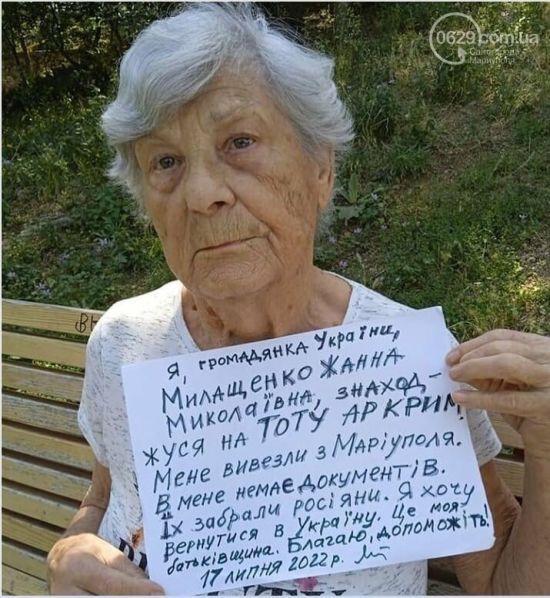 0629.com.ua
Сайт города
Мариуполя
Я, громадянка України,
Милащенко Жанна
Миколаївна, знаход-
жуся на ТОТУ АР КРИМ!
Мене вивезли з Маріуполя.
В мене немає документів.
Їх забрали росіяни. Я хочу
вернутися в Україну. Це моя
батьківщина. Благаю, допоможіть!
17 липня 2022 р.